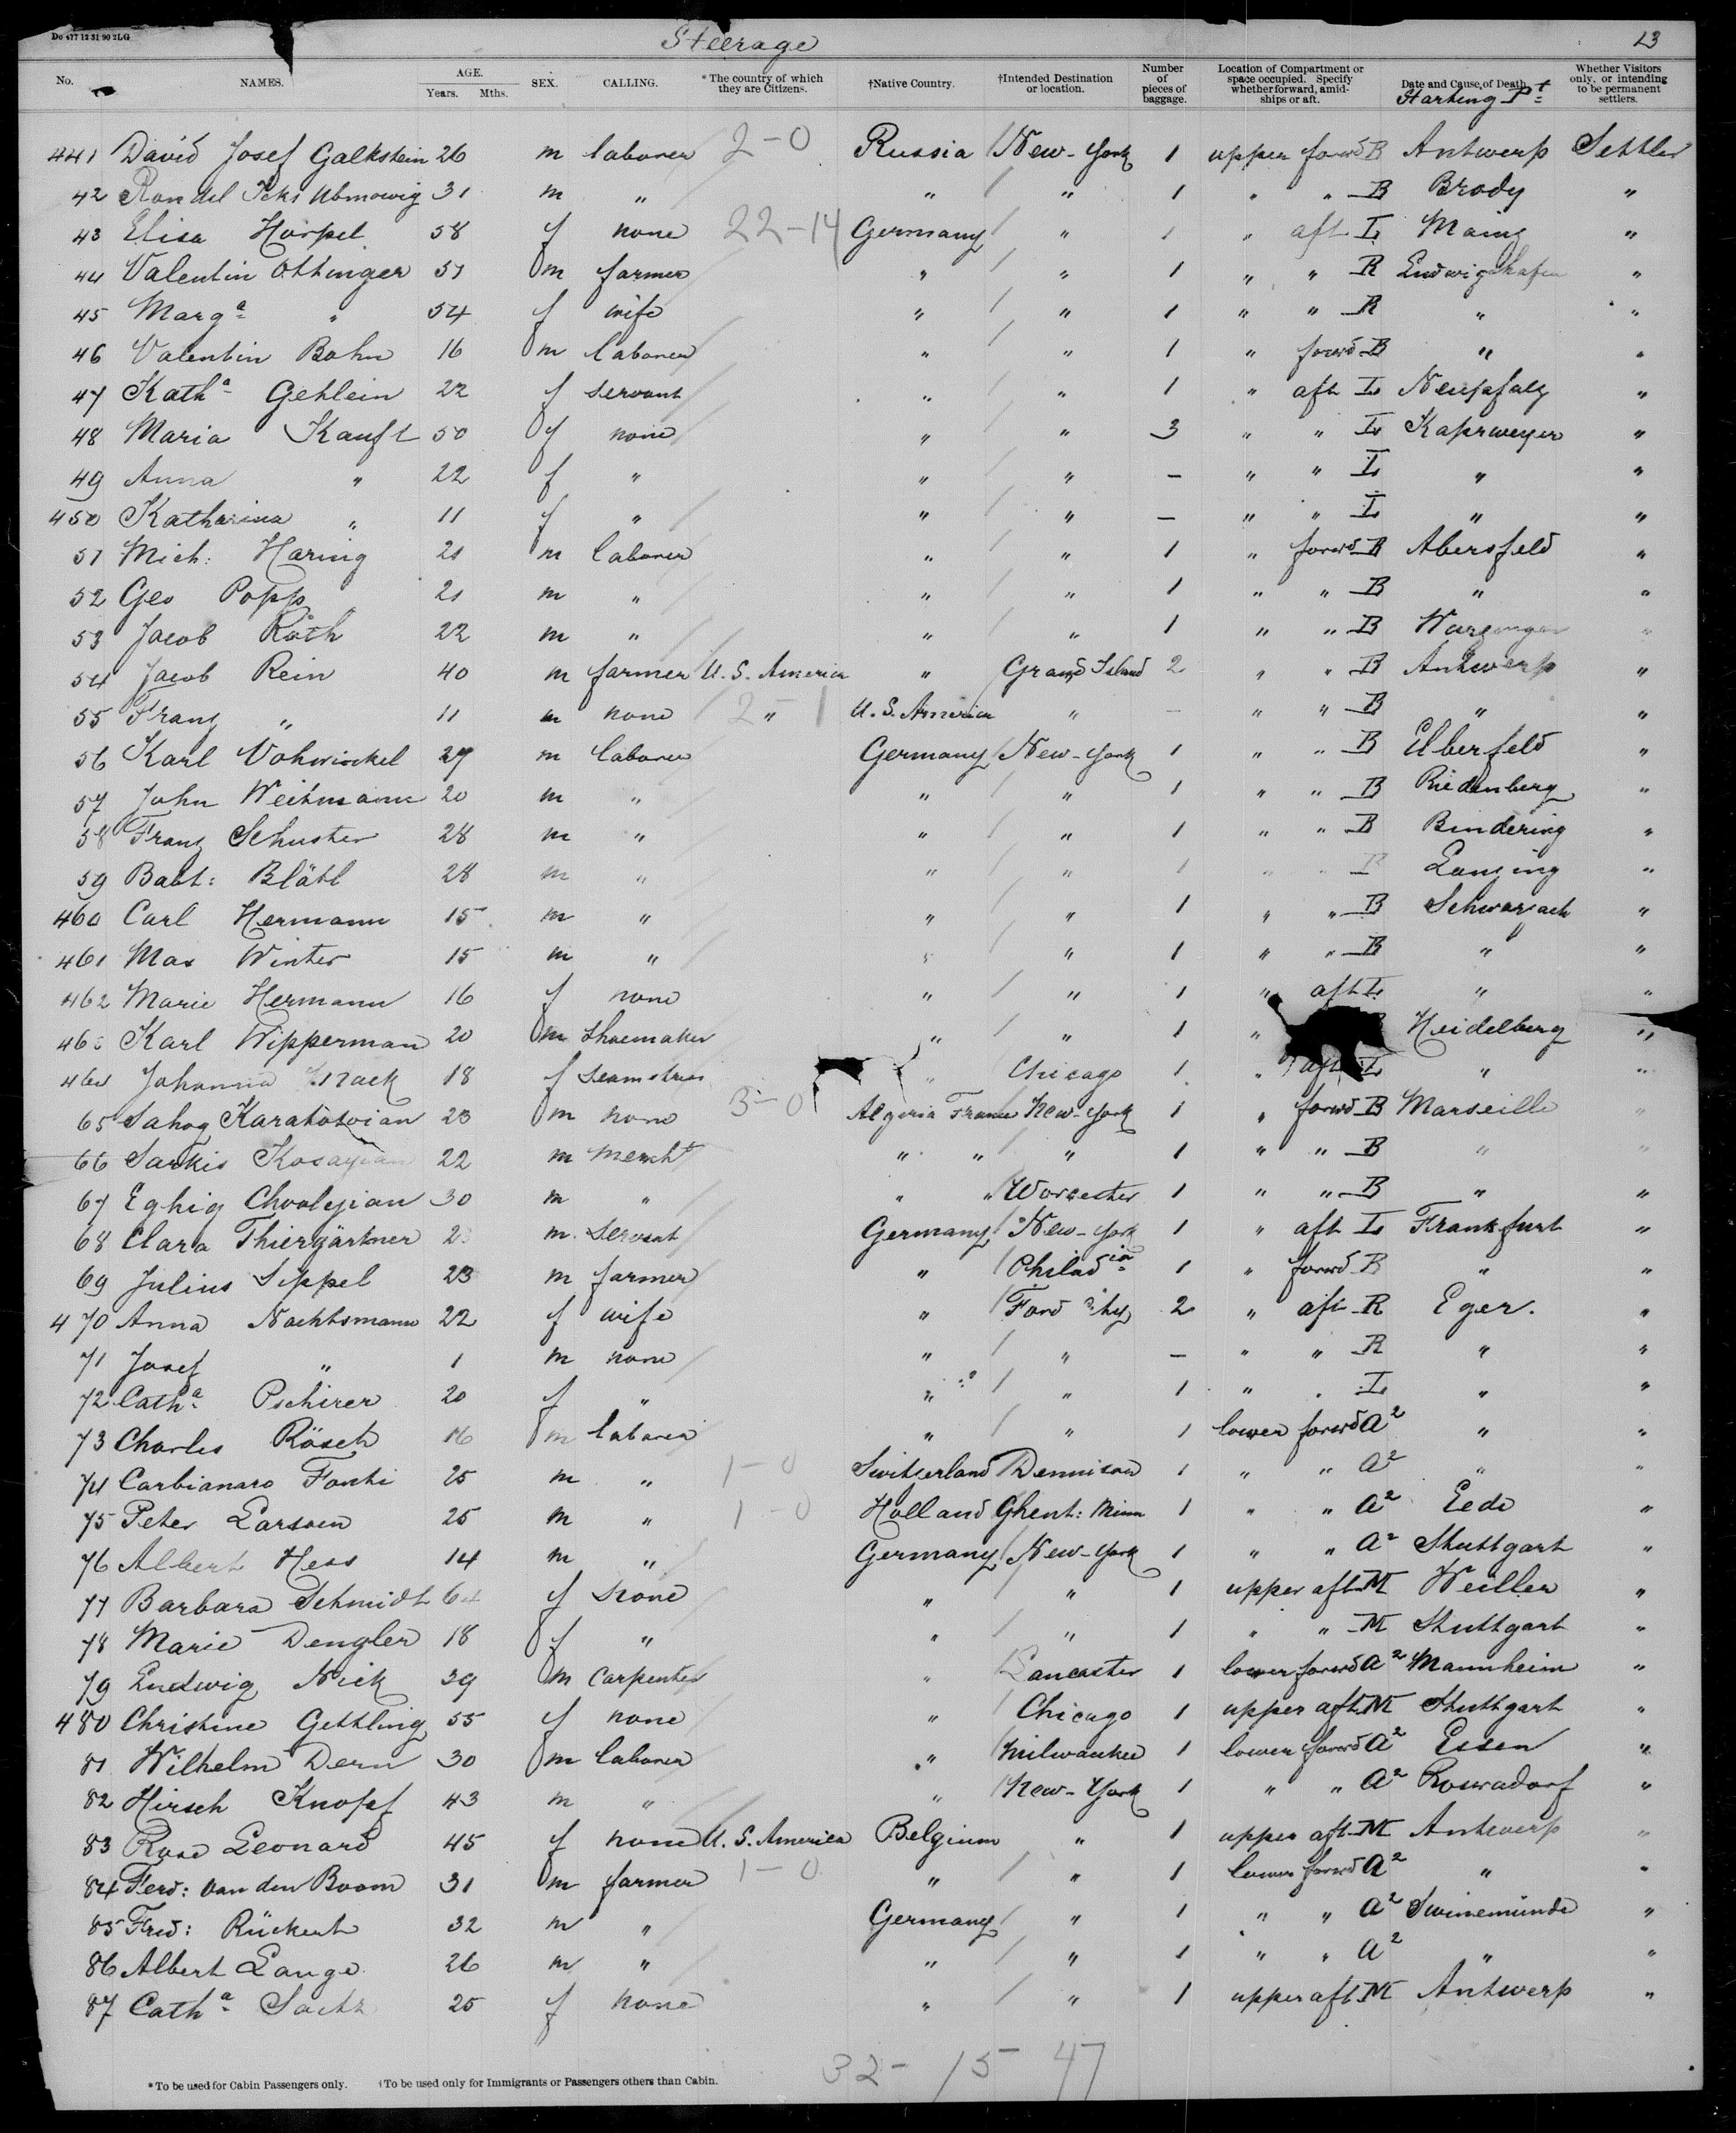 Do 477 12 31 90 2LG
Steerage 13
No. NAMES. AGE. Years. Mths. SEX. CALLING. *The country of which they are Citizens. †Native Country. †Intended Destination or location. Number of pieces of baggage. Location of Compartment or space occupied. Specify whether forward, amidships or aft. Date and Cause of Death. Starting Pt Whether Visitors only, or intending to be permanent settlers.
441 David Josef Galkstein 26 m laborer 2-0 Russia New-York 1 upper forwd B Antwerp Settler
42 31 m " " " 1 " " B Brody "
43 Elisa Horpel 58 f none 22-14 Germany " 1 " aft L Mainz "
44 Valentin Ottinger 51 m farmer " " 1 " " R Ludwigshafen "
45 Marga " 54 f wife " " 1 " " R " "
46 Valentin Bohn 16 m laborer " " 1 " forwd B " "
47 Katha Gehlein 22 f servant " " 1 " aft L Neupfalz "
48 Maria Kauft 50 f none " " 3 " " L Kaprweyer "
49 Anna " 22 f " " " – " " L " "
450 Katharina " 11 f " " " – " " L " "
51 Mich: Haring 21 m laborer " " 1 " forwd B Abersfeld "
52 Geo Popp 21 m " " " 1 " " B " "
53 Jacob Roth 22 m " " " 1 " " B "
54 Jacob Rein 40 m farmer U. S. America " Grand Island 2 " " B Antwerp "
55 Franz " 11 m none " 2-1 U. S. America " – " " B " "
56 Karl Vohwinkel 27 m laborer Germany New-York 1 " " B Elberfeld "
57 John Weitmann 20 m " " " 1 " " B Riedenberg "
58 Franz Schuster 28 m " " " 1 " " B Bindering "
59 Babt: Blätl 28 m " " " 1 " " B Lanzing "
460 Carl Hermann 15 m " " " 1 " " B Schwarzach "
461 Max Winter 15 m " " " 1 " " B " "
462 Marie Hermann 16 f none " " 1 " aft L " "
463 Karl Wipperman 20 m Shoemaker " " 1 " Heidelberg "
464 Johanna 18 f seamstress " Chicago 1 " aft L " "
65 Sahog Karakotoian 23 m none 3-0 Algeria France New-York 1 " forwd B Marseille "
66 Sarkis Kosayian 22 m mercht " " " 1 " " B " "
67 Eghig Chooleyian 30 m " " " Worcester 1 " " B " "
68 Clara Thiergärtner m servant Germany New-York 1 " aft L Frankfurt "
69 Julius Sippel 23 m farmer " Philadia 1 " forwd B " "
470 Anna Nachtsmann 22 f wife " Ford City 2 " aft R Eger. "
71 Josef " 1 m none " " – " " R " "
72 Catha Pschirer 20 f " " " 1 " " L " "
73 Charles Rösch 16 m laborer " " 1 lower forwd A2 " "
74 Carbianaro Fonti 25 m " 1-0 Switzerland Dennison 1 " " A2 " "
75 Peter Larsoen 25 m " 1-0 Holland Ghent: Minn 1 " " A2 Eede "
76 Albert Hess 14 m " Germany New-York 1 " " A2 Stuttgart "
77 Barbara Schmidt 64 f none " " 1 upper aft M Weiller "
78 Marie Dengler 18 f " " " 1 " " M Stuttgart "
79 Ludwig Nick 39 m carpenter " Lancaster 1 lower forwd A2 Mannheim "
480 Christine Gettling 55 f none " Chicago 1 upper aft M Stuttgart "
81 Wilhelm Dern 30 m laborer " Milwaukee 1 lower forwd A2 Essen "
82 Hirsch Knopf 43 m " " New-York 1 " " A2 Roswadorf "
83 Rose Leonard 45 f none U. S. America Belgium " 1 upper aft M Antwerp "
84 Ferd: van den Boom 31 m farmer 1-0 " " 1 lower forwd A2 " "
85 Fred: Rückert 32 m " Germany " 1 " " A2 Swinemünde "
86 Albert Lange 26 m " " " 1 " " A2 " "
87 Catha 25 f none " " 1 upper aft M Antwerp "
32- 15 47
*To be used for Cabin Passengers only. †To be used only for Immigrants or Passengers others than Cabin.